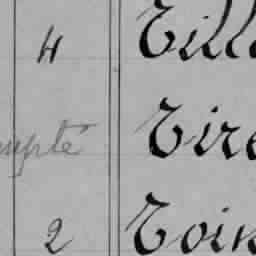 4 Till
mpté Tire
2 Toin